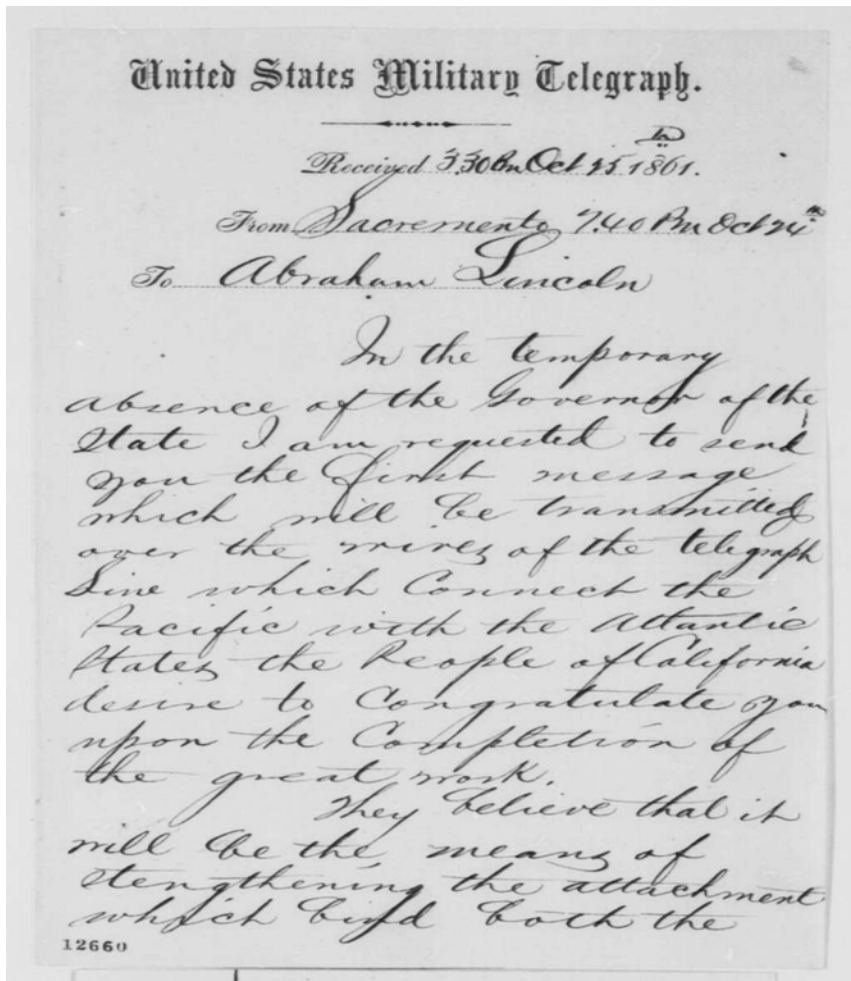 United States Military Telegraph.
Received 3,30 Pm Oct 25 1861.
From Sacremento 7.40 Pm Oct 24th
To Abraham Lincoln
In the temporary
absence of the Governor of the
State I am requested to send
you the first message
which will be transmitted
over the wires of the telegraph
Line which Connect the
Pacific with the Atlantic
States the People of California
desire to Congratulate you
upon the Completion of
the great work.
They believe that it
will be the means of
stengthening the attachment
which bind both the
12660